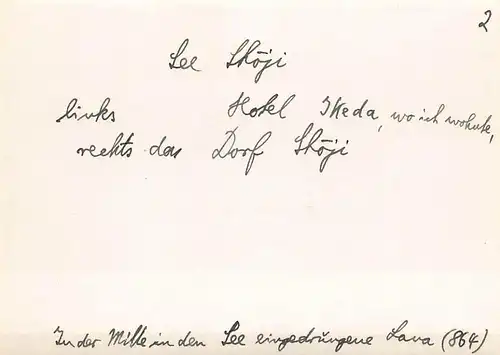 2
See Shōji
links Hotel Ikeda, wo ich wohnte,
rechts das Dorf Shōji
In der Mitte in den See eingedrungene Lava (864)